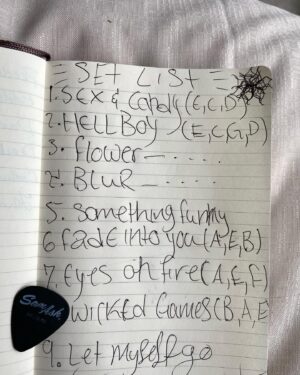 SET LIST
1. SEX & Candy (E, C, D)
2. HELLBOY (E, C, G, D)
3. flower - . . . .
2. BLUR - . . . .
5. Something funny
6 fade into you (A, E, B)
7. Eyes on fire (A, E, F)
wicked Games (B, A, E
9. Let myself go
Sam Ash